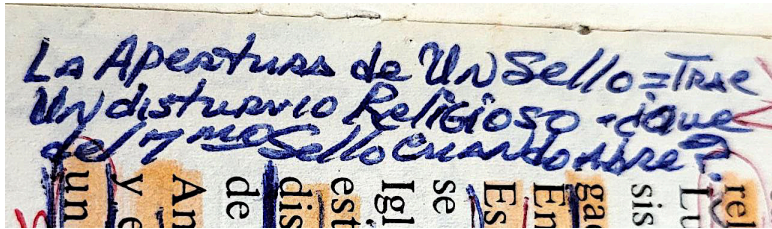 La Apertura de Un Sello = Trae
Un disturvio Religioso - ¿que
del 7mo Sello cuando Abre?
rel
Lu
sis
gad
En
Es
se
Igl
est
dis
de
An
y e
un